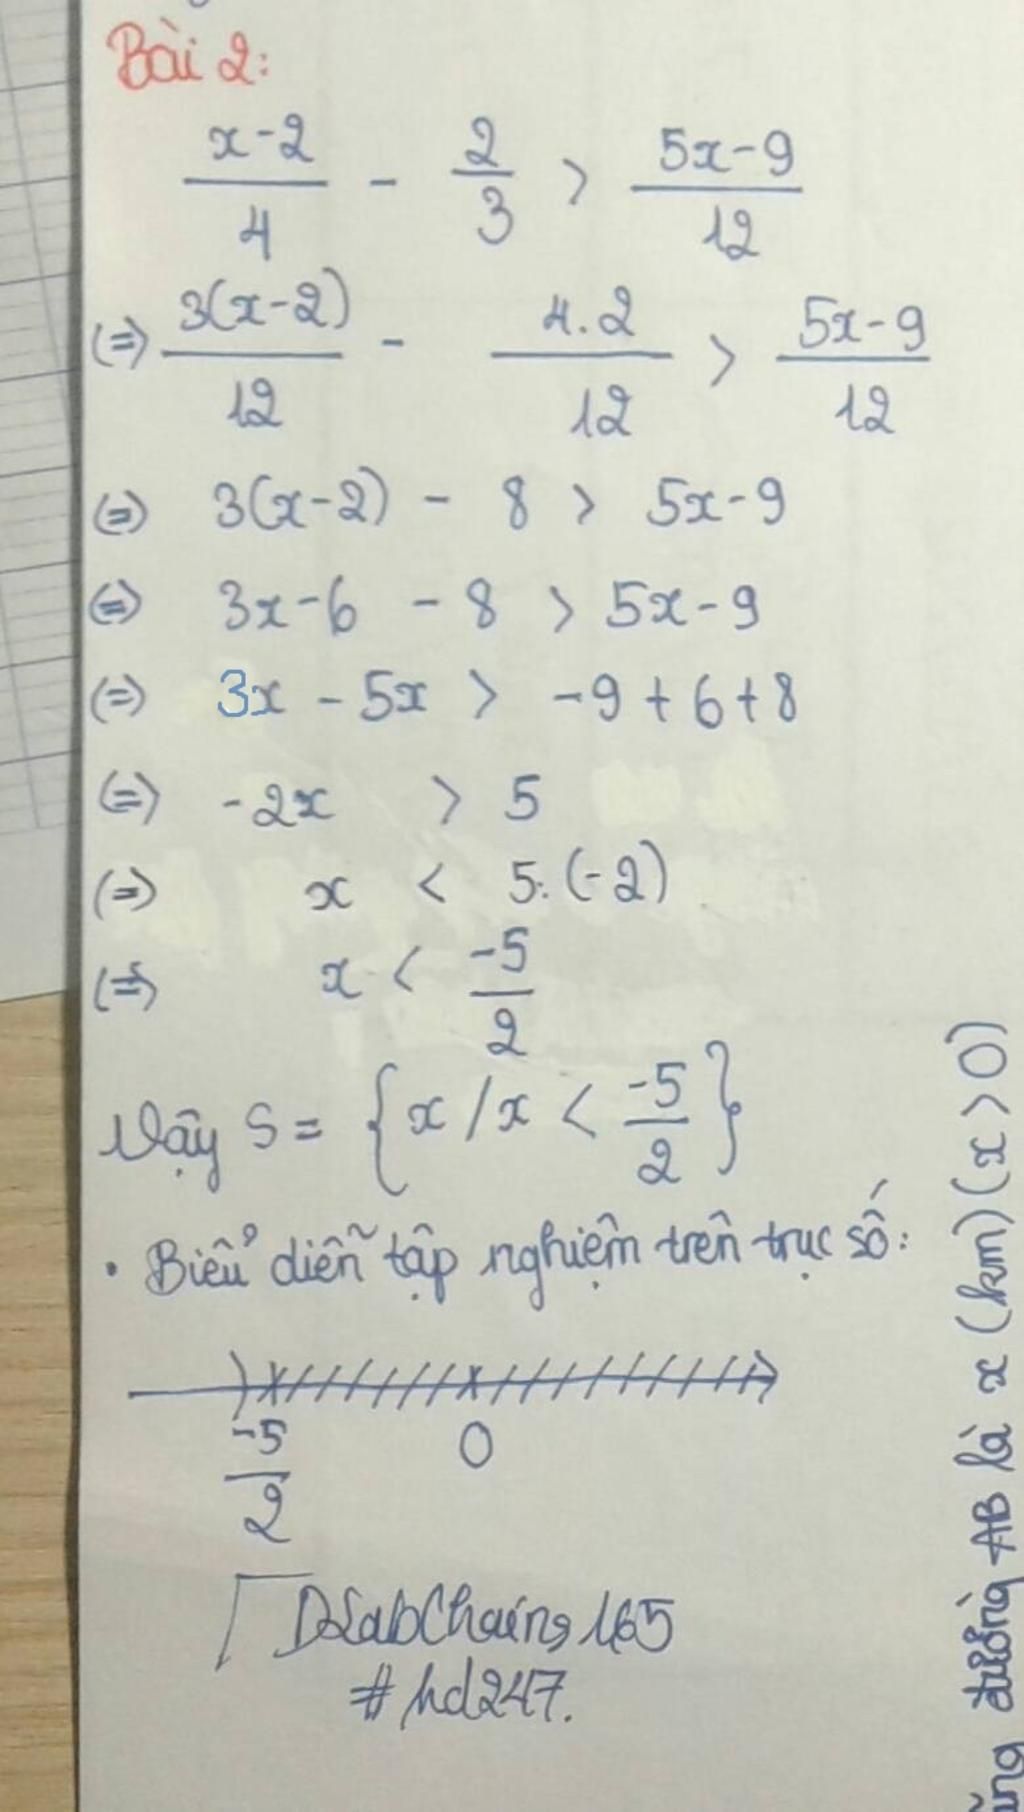 Bài 2:
x-2/4 - 2/3 > 5x-9/12
(=) 3(x-2)/12 - 4.2/12 > 5x-9/12
(=) 3(x-2) - 8 > 5x-9
(=) 3x-6 - 8 > 5x-9
(=) 3x - 5x > -9+6+8
(=) -2x > 5
(=) x < 5:(-2)
(=) x < -5/2
Vậy S = {x/x < -5/2}
• Biểu diễn tập nghiệm trên trục số:
-5/2 0
#hd247.
đường AB là x (km) (x>0)